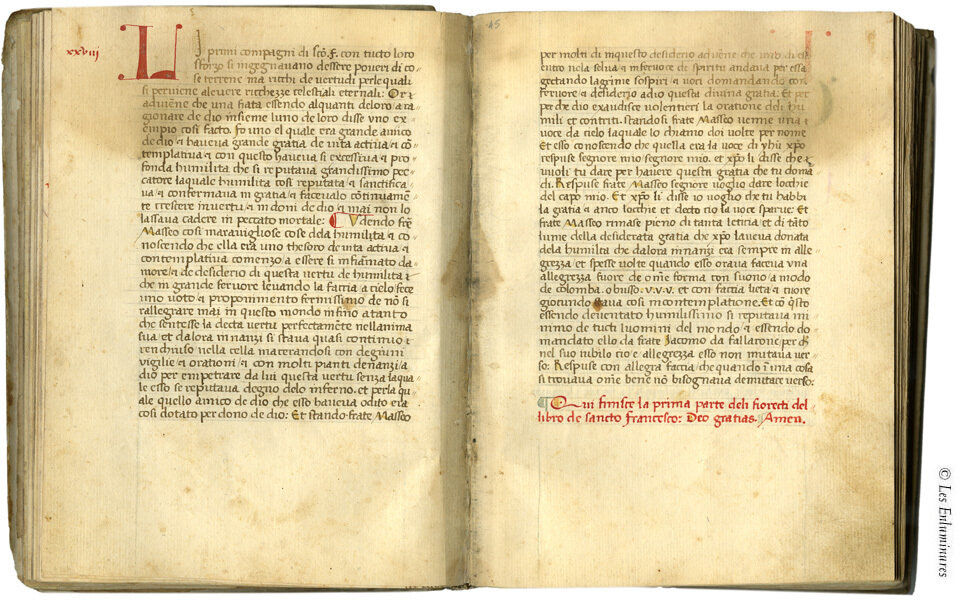 xxviij
LJ primi compagni di sc̄o .f. con tucto loro
sforzo si ingegnavano dessere poveri di co-
se terrene ma ricchi de vertudi per le quali
si perviene a le vere ricchezze celestiali eternali: Or
advi͞ene che una fiata essendo alquanti de loro a ra-
gionare de dio insieme luno de loro disse uno ex-
empio cosi facto. Fo uno el quale era grande amico
de dio ⁊ haveva grande gratia de vita activa ⁊ cō-
templativa ⁊ con questo haveva si excessiva ⁊ pro-
fonda humilita che si reputava grandissimo pec-
catore la quale humilita cosi reputata ⁊ sanctifica-
va ⁊ confermava in gratia ⁊ facevalo cōtinuamē-
te crescere in vertu ⁊ in doni de dio ⁊ mai non lo
lassava cadere in peccato mortale: Vdendo fre
Masseo cosi maravigliose cose dela humilita ⁊ co-
noscendo che ella era uno thesoro de vita activa ⁊
contemplativa comenzo a essere si infiamato da-
more ⁊ de desiderio di questa vertu de humilita ⁊
che in grande fervore levando la faccia a cielo fece
uno voto ⁊ proponimento fermissimo de nō si
rallegrare mai in questo mondo infino a tanto
che sentesse la decta vertu perfectamēte nell anima
sua et da lora innanzi si stava quasi continuo
renchiuso nella cella macerandosi con degiuni
vigilie ⁊ orationi ⁊ con molti pianti denanzi a
dio per empetrare da lui questa vertu senza la qua-
le esso se reputava degno delo inferno. et per la qua-
le quello amico de dio che esso haveva odito era
cosi dotato per dono de dio: Et stando frate Masseo
45
per molti di in questo desiderio advēne che uno di es-
entro nela selva ⁊ in fervore et spiritu andava per essa
gectando lagrime sospiri ⁊ voci domandando con
fervore ⁊ desiderio a dio questa divina gratia: Et per
per che dio exaudisce volentieri la oratione deli hu-
mili et contriti. Stando si frate Masseo venne una
voce da cielo la quale lo chiamo doi volte per nome
Et esso conoscendo che quella era la voce di yhū xp̄o
respuse segnore mio segnore mio. et xp̄o li disse che
vuoli tu dare per havere questa gratia che tu domā-
di. Respuse frate Masseo segnore voglio dare locchie
del capo mio. Et xp̄o li disse io voglio che tu habbi
la gratia ⁊ anco locchie et decto cio la voce sparve: Et
frate Masseo rimase pieno di tanta leticia et di tāto
lume della desiderata gratia che xp̄o laveva donata
dela humilta che dalora innanzi era sempre in alle-
grezza et spesse volte quando esso orava faceva una
allegrezza fuore de om̄e forma con suono a modo
de colomba. obusso .v.v.v. et con faccia lieta ⁊ cuore
giocundo stava cosi in contemplatione. Et cō q̄sto
essendo deventato humilissimo si reputava mi-
nimo de tucti luomini del mondo ⁊ essendo do-
mandato ello da frate Jacomo da fallarone per ch̄
nel suo iubilo cio e allegrezza esso non mutava ver-
so: Respuse con allegra faccia che quando ī una cosa
si trovava om̄e bene nō bisognava de mutare verso:
Qui finisce la prima parte deli fiorecti del
libro de sancto francesco: Deo gratias. Amen.
© Les Enluminures